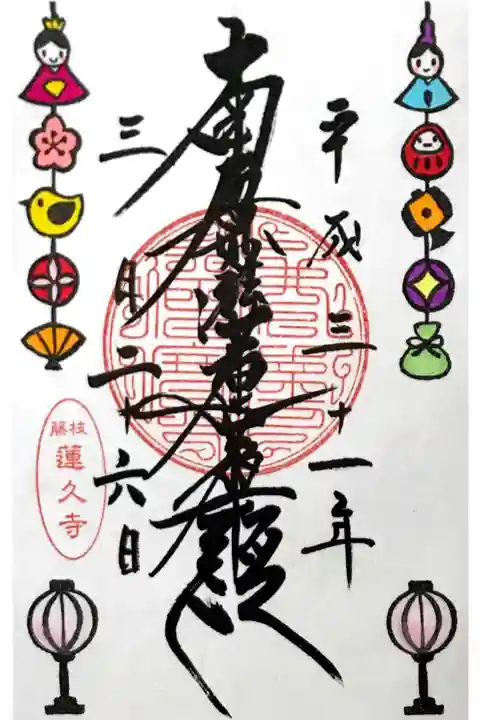 平成三十一年
南無妙法蓮華経
三月二十六日
藤枝
蓮久寺